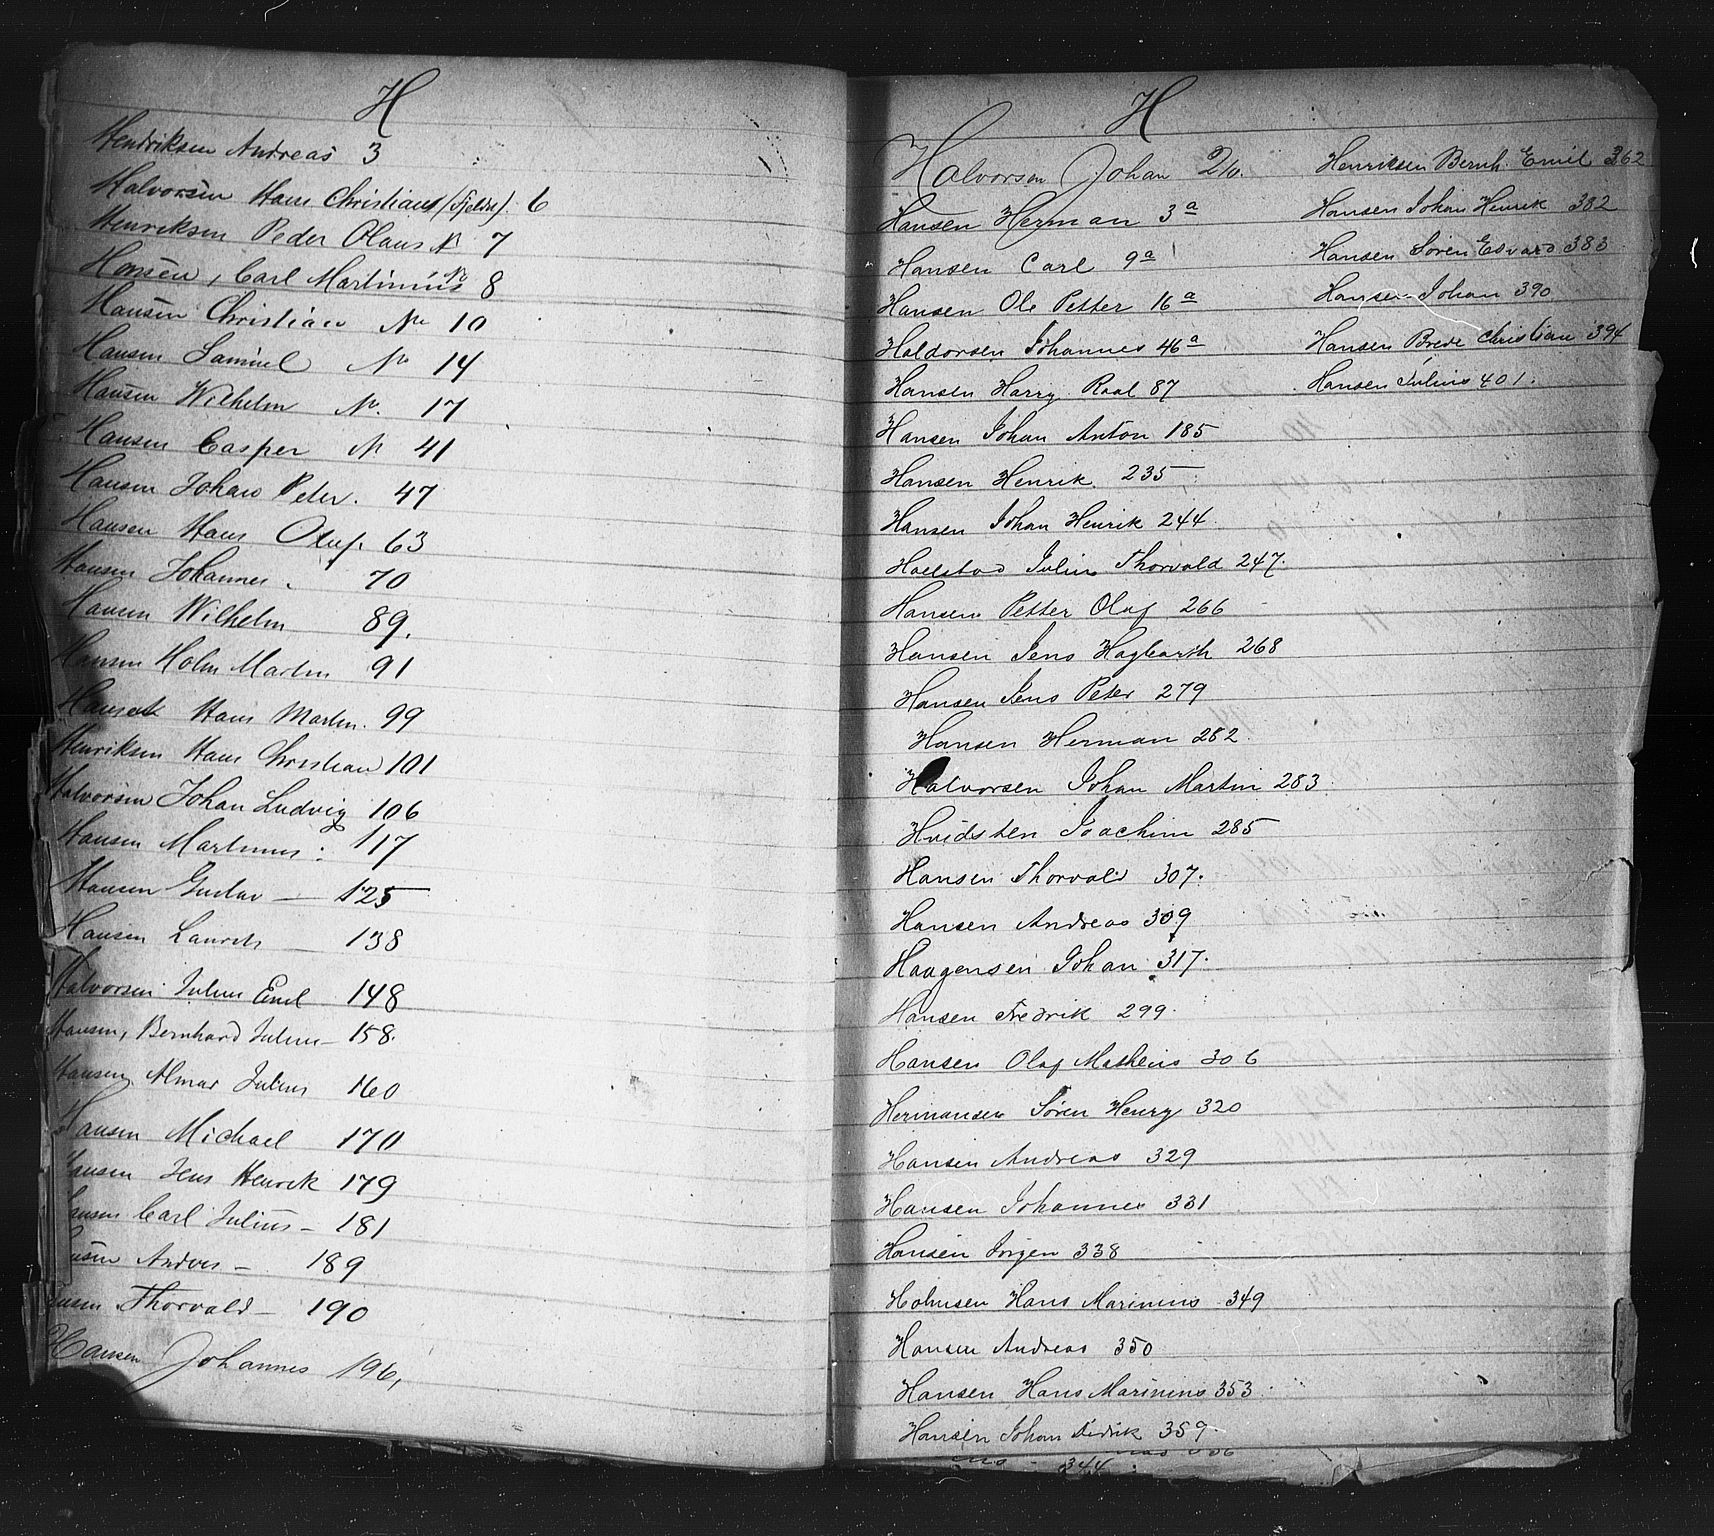 H
Hendriksen Andreas 3
Halvorsen Hans Christians (Fjeldst). 6
Henriksen Peder Olaus N 7
Hansen, Carl Martinius No 8
Hansen Christian No 10
Hansen Samuel No 14
Hansen Wilhelm No. 17
Hansen Casper N 41
Hansen Johan Peter. 47
Hansen Hans Oluf. 63
Hansen Johannes. 70
Hansen Wilhelm 89.
Hansen Holm Martin 91
Hans Martin. 99
Henriksen Hans Christian 101
Halvorsen Johan Ludvig 106
Hansen Martinus : 117
Hansen Gustav — 125
Hansen Laurits — 138
Halvorsen Julius Emil 148
Hansen, Bernhard Julius — 158.
Hansen Almar Julius 160
Hansen Michael 170
Hansen Jens Henrik 179
Hansen Carl Julius — 181
Hansen Anders — 189
Hansen Thorvald — 190
Hansen Johannes 196,
H
Halvorsen Johan 210.
Hansen Herman 3a
Hansen Carl 9a
Hansen Ole Petter 16a
Haldorsen Johannes 46a
Hansen Harry Roal 87
Hansen Johan Anton 185
Hansen Henrik 235
Hansen Johan Henrik 244
Haelstad Julius Thorvald 247.
Hansen Petter Olaf 266
Hansen Jens Hagbarth 268
Hansen Jens Peter 279
Hansen Herman 282.
Halvorsen Johan Martin 283
Hvidsten Joachim 285
Hansen Thorvald 307.
Hansen Andreas 309
Haagensen Johan 317.
Hansen Fredrik 299.
Hansen Olaf Matheus 306
Hermansen Søren Henry 320
Hansen Andreas 329
Hansen Johannes 331
Hansen Jørgen 338
Holmsen Hans Marinius 349
Hansen Andreas 350
Hansen Hans Marinius 353.
Hansen Johan Didrik 359.
344
Henriksen Bernh. Emil 362
Hansen Johan Henrik 382
Hansen Søren Edvard 383
Hansen Johan 390
Hansen Brede Christian 394
Hansen Julius 401.